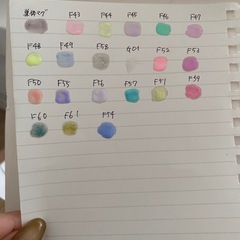 単体マグ F43 F44 F45 F46 F47
F48 F49 F58 G01 F52 F53
F50 F55 F56 F57 F51 F59
F60 F61 F54